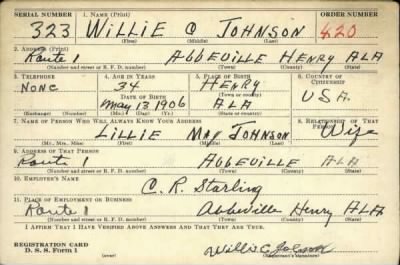 SERIAL NUMBER 1. NAME (Print) ORDER NUMBER
323 WILLIE C JOHNSON 420
(First) (Middle) (Last)
2. ADDRESS (Print)
Route 1 Abbeville Henry ALA
(Number and street or R. F. D. number) (Town) (County) (State)
3. TELEPHONE 4. AGE IN YEARS 5. PLACE OF BIRTH 6. COUNTRY OF CITIZENSHIP
None 34 Henry
DATE OF BIRTH (Town or county)
May 13 1906 ALA USA.
(Exchange) (Number) (Mo.) (Day) (Yr.) (State or country)
7. NAME OF PERSON WHO WILL ALWAYS KNOW YOUR ADDRESS 8. RELATIONSHIP OF THAT PERSON
LILLIE MAY JOHNSON Wife
(Mr., Mrs., Miss) (First) (Middle) (Last)
9. ADDRESS OF THAT PERSON
Route 1 Abbeville ALA
(Number and street or R. F. D. number) (Town) (County) (State)
10. EMPLOYER'S NAME
C. R. Starling
11. PLACE OF EMPLOYMENT OR BUSINESS
Route 1 Abbeville Henry ALA
(Number and street or R. F. D. number) (Town) (County) (State)
I AFFIRM THAT I HAVE VERIFIED ABOVE ANSWERS AND THAT THEY ARE TRUE.
REGISTRATION CARD
D. S. S. Form 1 Willie C Johnson
(Registrant's signature)